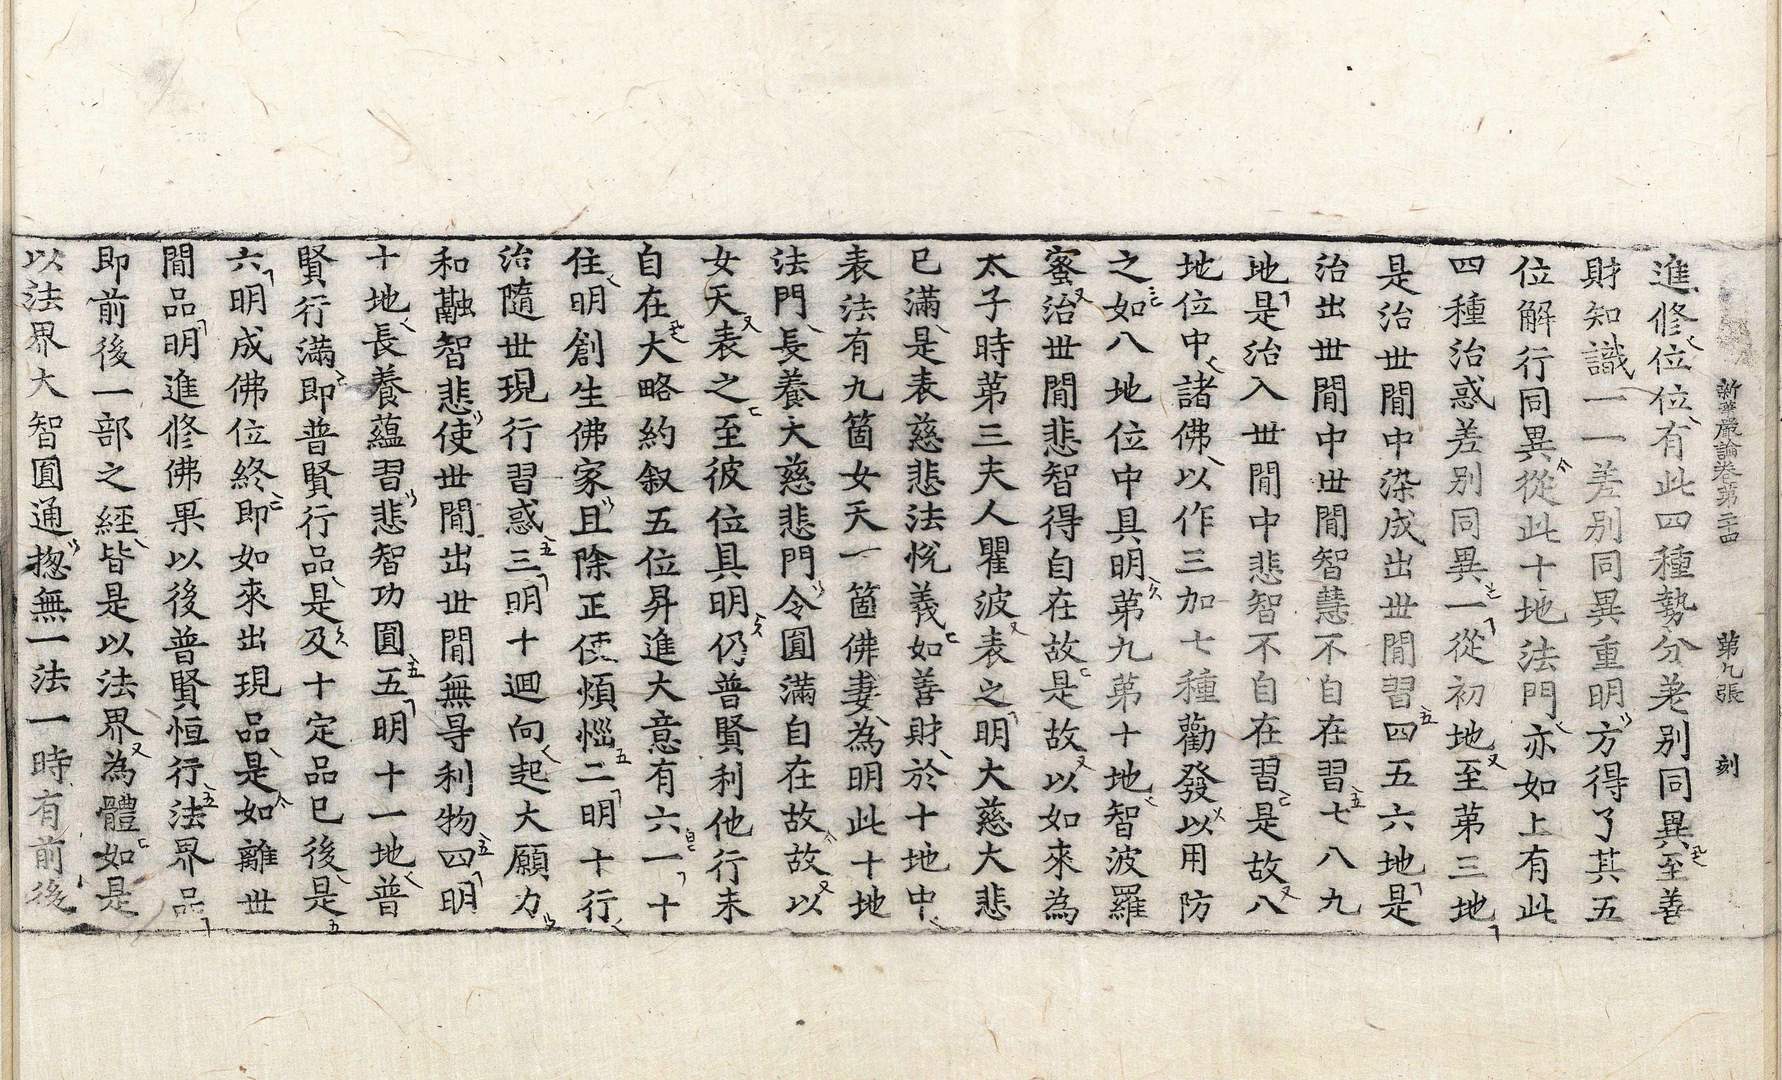 新華嚴論卷第二十四 第九張 刻
進修位位有此四種勢分差别同異至善
財知識一一差别同異重明方得了其五
位解行同異從此十地法門亦如上有此
四種治惑差别同異一從初地至第三地
是治丗閒中染成出丗閒習四五六地是
治出丗閒中丗閒智慧不自在習七八九
地是治入丗閒中悲智不自在習是故八
地位中諸佛以作三加七種勸發以用防
之如八地位中具明第九第十地智波羅
蜜治丗閒悲智得自在故是故以如來為
太子時第三夫人瞿波表之明大慈大悲
已滿是表慈悲法悅義如善財於十地中
表法有九箇女天一箇佛妻為明此十地
法門長養大慈悲門令圓滿自在故故以
女天表之至彼位具明仍普賢利他行未
自在大略約叙五位昇進大意有六一十
住明創生佛家且除正使煩惱二明十行
治隨丗現行習惑三明十迴向起大願力
和融智悲使丗閒出丗閒無㝵利物四明
十地長養蘊習悲智功圓五明十一地普
賢行滿即普賢行品是及十定品已後是
六明成佛位終即如來出現品是如離丗
閒品明進修佛果以後普賢恒行法界品
即前後一部之經皆是以法界為體如是
以法界大智圓通揔無一法一時有前後